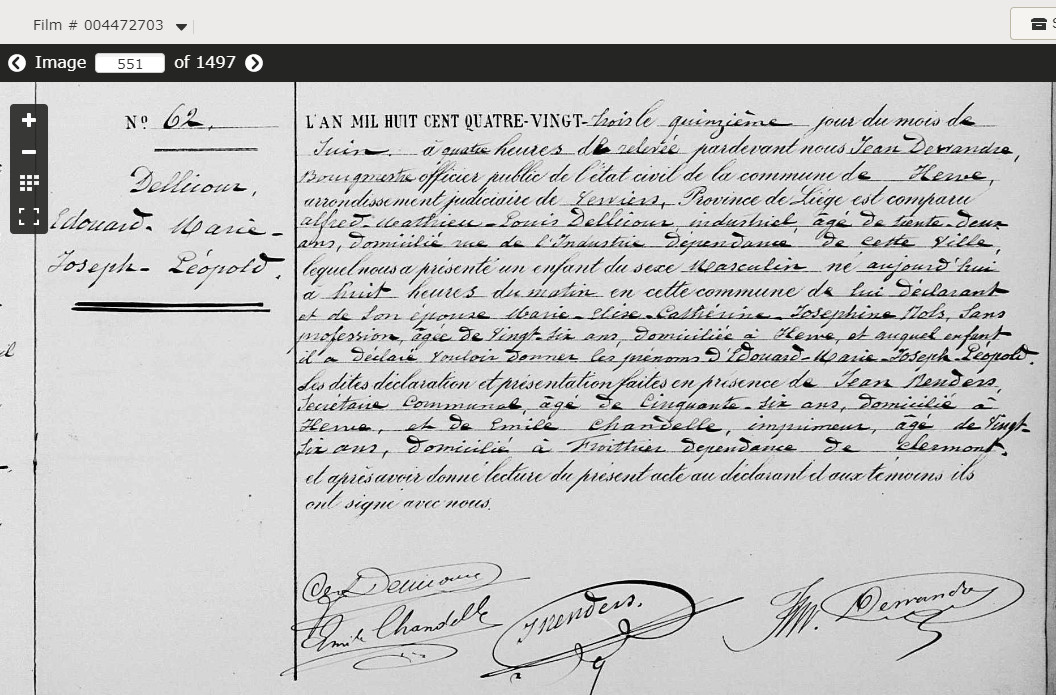 Film # 004472703
Image 551 of 1497
Nº 62.
Dellicour,
Edouard-Marie-
Joseph-Léopold.
L'AN MIL HUIT CENT QUATRE-VINGT-trois le quinzième jour du mois de
Juin. à quatre heures de relevée pardevant nous Jean Dewandre,
Bourgmestre officier public de l'état civil de la commune de Herve,
arrondissement judiciaire de Verviers, Province de Liége est comparu
Alfred-Mathieu-Louis Dellicour, industriel, âgé de trente-deux
ans, domicilié rue de l'Industrie dépendance de cette Ville,
lequel nous a présenté un enfant du sexe Masculin né aujourd'hui
à huit heures du matin en cette commune de lui déclarant
et de Son épouse Marie-Elise-Cathérine-Joséphine Nols, Sans
profession, âgée de Vingt-Six ans, domiciliée à Herve, et auquel enfant
il a déclaré vouloir donner les prénoms d'Edouard-Marie-Joseph-Léopold.
Les dites déclaration et présentation faites en présence de Jean Renders,
Secrétaire Communal, âgé de Cinquante-Six ans, domicilié à
Herve, et de Emile Chandelle, imprimeur, âgé de Vingt-
Six ans, domicilié à Froidthier dépendance de Clermont.
et après avoir donné lecture du présent acte au déclarant et aux témoins ils
ont signé avec nous.
Dellicour
Emile Chandelle
J Renders.
Dewandre